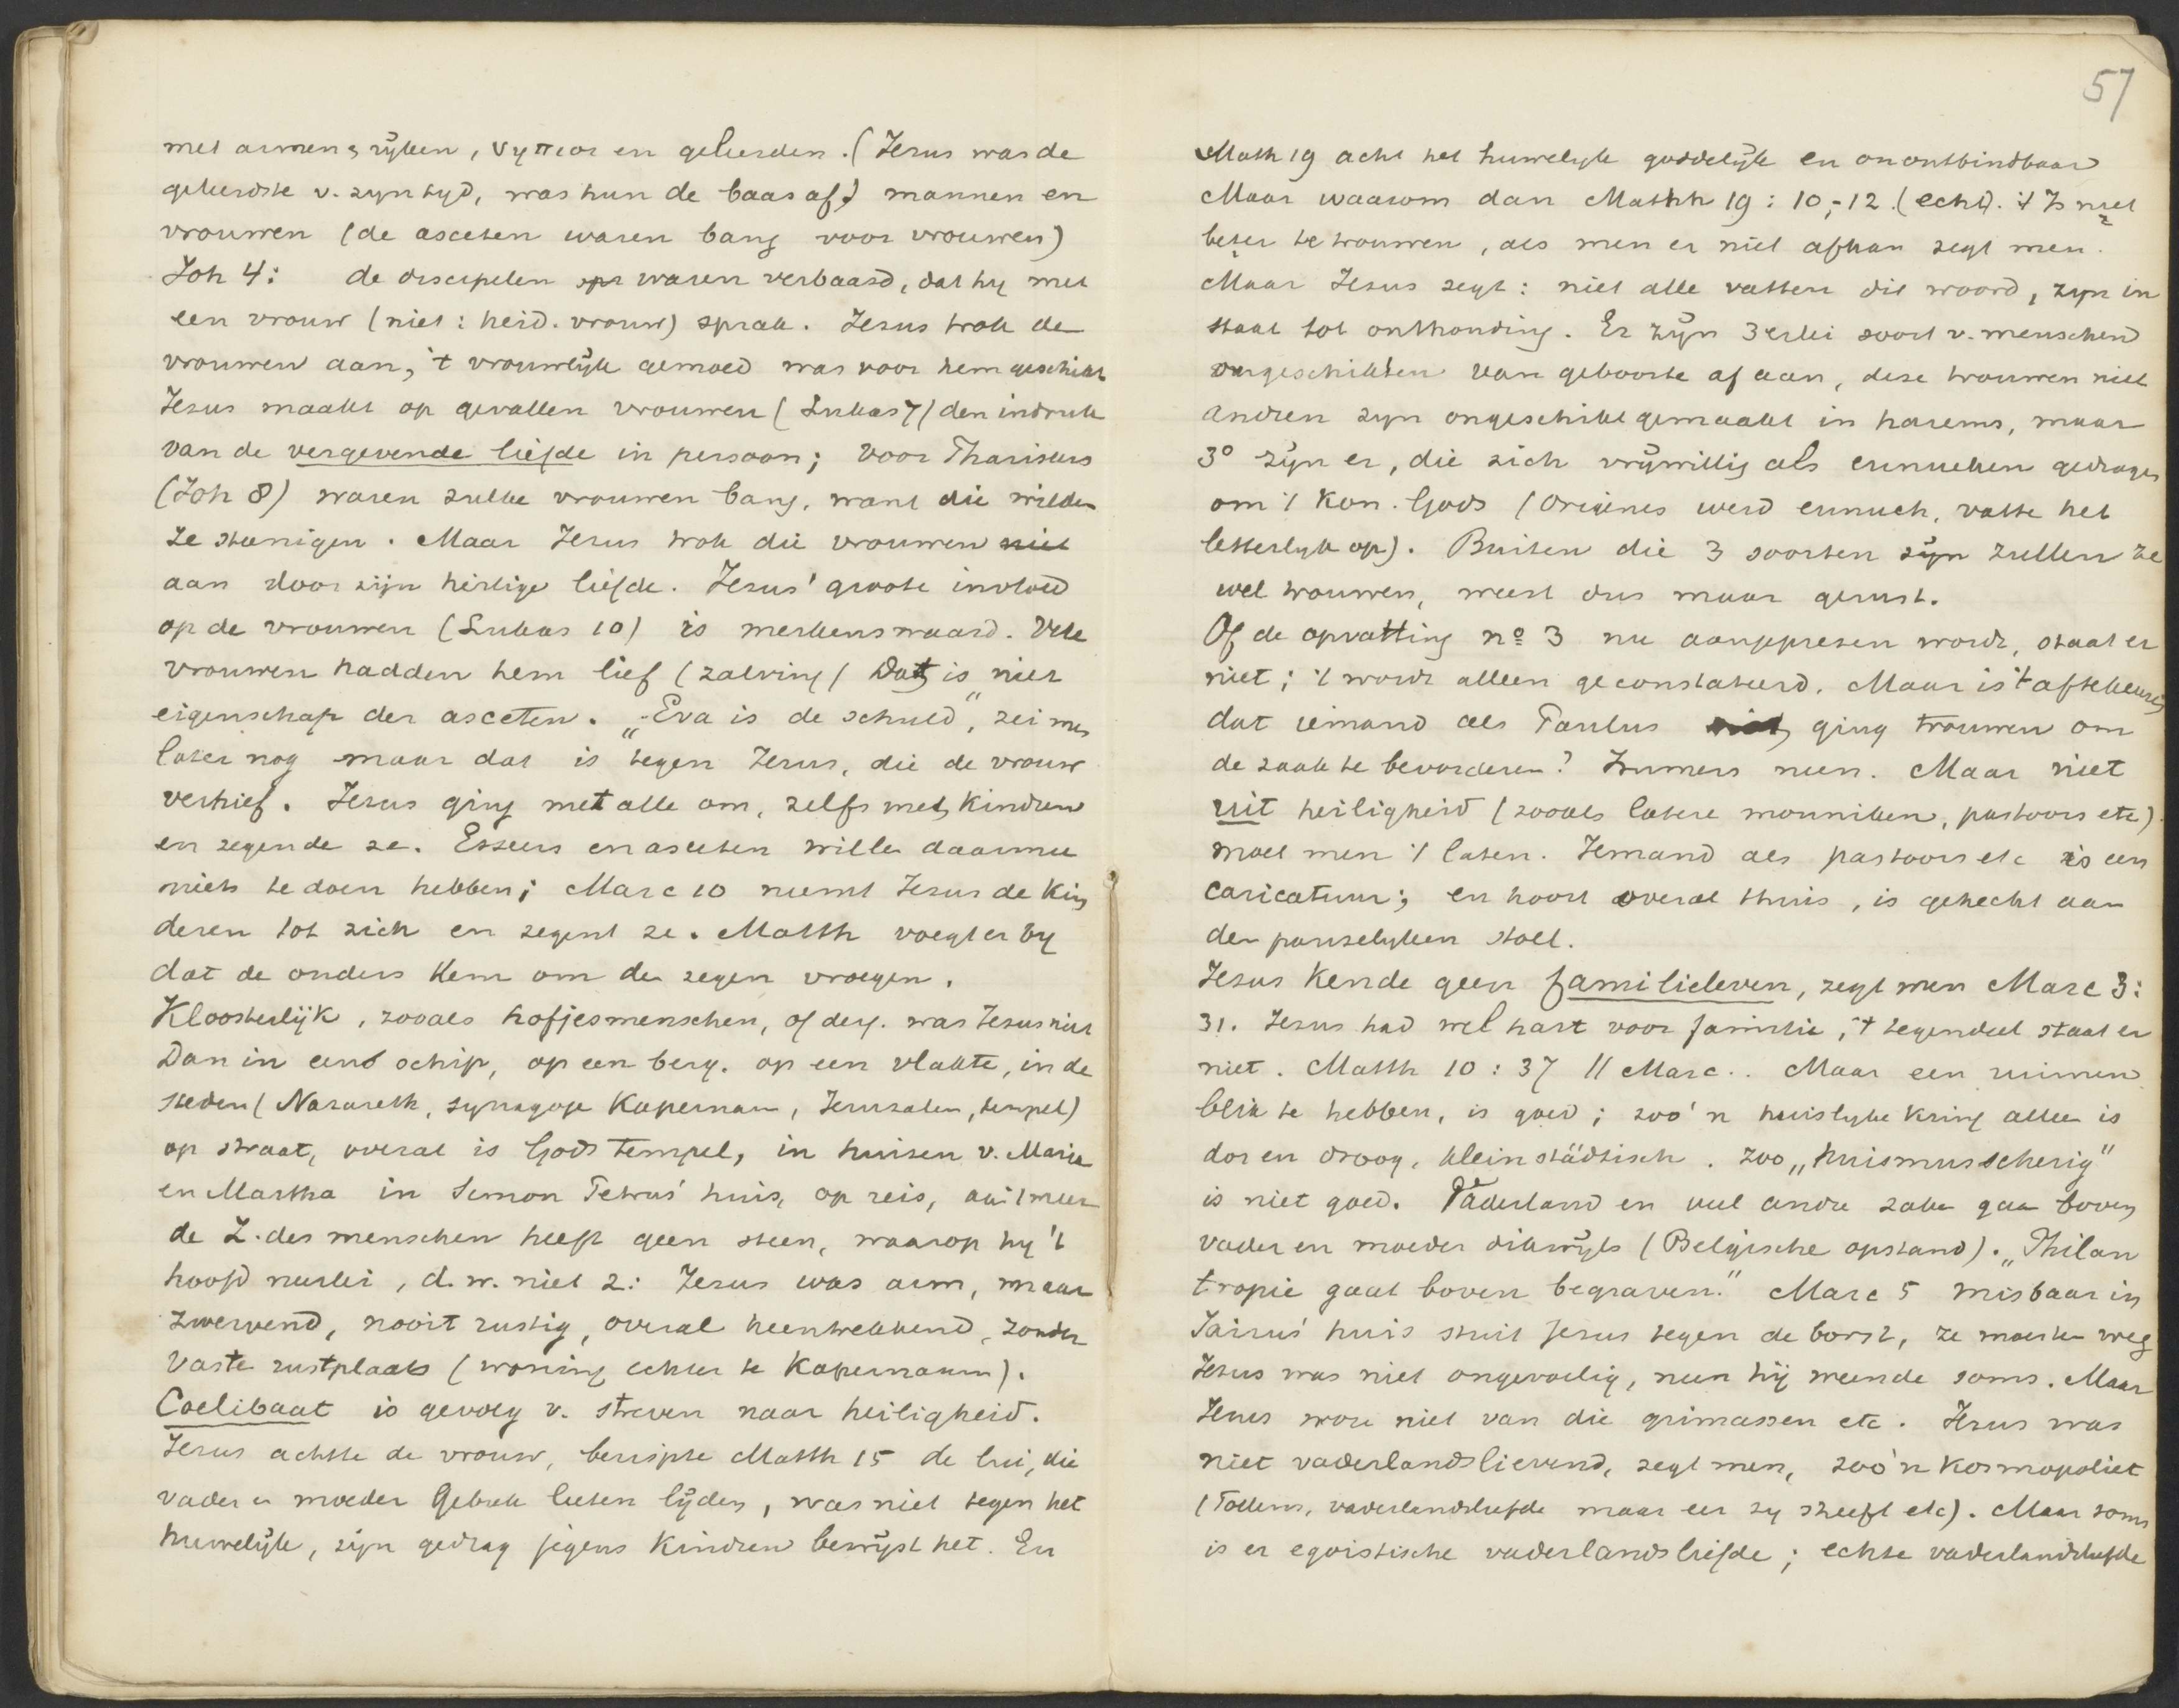 met armen, rijken, νηπιοι en geleerden. (Jezus was de
geleerdste v. zyn tyd, was hun de baas af) mannen en
vrouwen (de asceten waren bang voor vrouwen)
Joh 4: de discipelen waren verbaasd, dat hy met
een vrouw (niet: heid. vrouw) sprak. Jezus trok de
vrouwen aan, 't vrouwelijk gemoed was voor hem geschikt
Jezus maakt op gevallen vrouwen (Lukas 7) den indruk
van de vergevende liefde in persoon; voor Phariseers
(Joh 8) waren zulke vrouwen bang, want die wilden
ze steenigen. Maar Jezus trok die vrouwen niet
aan door zijn heilige liefde. Jezus' groote invloed
op de vrouwen (Lukas 10) is merkenswaard. Vele
vrouwen hadden hem lief (zalving) Dat is niet
eigenschap der asceten. „Eva is de schuld", zei men
later nog maar dat is tegen Jezus, die de vrouw
verhief. Jezus ging met alle om, zelfs met kindren
en zegende ze. Esseers en asceten willen daarmee
niets te doen hebben; Marc 10 neemt Jezus de kin
deren tot zich en zegent ze. Matth voegt er by
dat de ouders hem om den zegen vroegen.
Kloosterlijk, zooals hofjesmenschen, of derg. was Jezus niet
Dan in een schip, op een berg, op een vlakte, in de
steden (Nazareth, synagoge Kapernaum, Jeruzalem, tempel)
op straat, overal is Gods tempel, in huizen v. Maria
en Martha in Simon Petrus' huis, op reis, aan 't meer
de Z. des menschen heeft geen steen, waarop hy 't
hoofd neerlei, d.w. niet z: Jezus was arm, maar
zwervend, nooit rustig, overal heentrekkend, zonder
vaste rustplaats (woning echter te Kapernaum).
Coelibaat is gevolg v. streven naar heiligheid.
Jezus achtte de vrouw, berispte Matth 15 de lui, die
vader en moeder gebrek lieten lijden, was niet tegen het
huwelijk, zijn gedrag jegens kindren bewijst het. En
57
Math 19 acht het huwelyk goddelijk en onontbindbaar
Maar waarom dan Matth 19: 10-12. (echt). 't Is niet
beter te trouwen, als men er niet afkan zegt men.
Maar Jezus zegt: niet alle vatten dit woord, zyn in
staat tot onthouding. Er zijn 3erlei soort v. menschen
ongeschikten van geboorte af aan, deze trouwen niet
andren zyn ongeschikt gemaakt in harems, maar
3° zijn er, die zich vrijwillig als eunuchen gedragen
om 't Kon. Gods (Origenes werd eunuch, vatte het
letterlyk op). Buiten die 3 soorten zijn zullen ze
wel trouwen, weest dus maar gerust.
Of de opvatting nº 3 nu aangeprezen wordt, staat er
niet; 't wordt alleen geconstateerd. Maar is 't af te keuren,
dat iemand als Paulus niet ging trouwen om
de zaak te bevorderen? Immers neen. Maar niet
uit heiligheid (zooals latere monniken, pastoors etc)
moet men 't laten. Iemand als pastoors etc is een
caricatuur; en hoort overal thuis, is gehecht aan
den pauselyken stoel.
Jezus kende geen familieleven, zegt men Marc 3:
31. Jezus had wel hart voor familie, 't tegendeel staat er
niet. Matth 10: 37 // Marc.. Maar een ruimen
blik te hebben, is goed; zoo'n huislyke kring alleen is
dor en droog, kleinstädtisch. Zoo „huismusscherig"
is niet goed. Vaderland en veel andre zaken gaan boven
vader en moeder dikwijls (Belgische opstand). „Philan
tropie gaat boven begraven." Marc 5 misbaar in
Jaïrus' huis stuit Jezus tegen de borst, ze moesten weg
Jezus was niet ongevoelig, neen hij weende soms. Maar
Jezus wou niet van die grimassen etc. Jezus was
niet vaderlandslievend, zegt men, zoo'n kosmopoliet
(Tollens, vaderlandsliefde maar eer zy sneeft etc). Maar soms
is er egoistische vaderlandsliefde; echte vaderlandsliefde